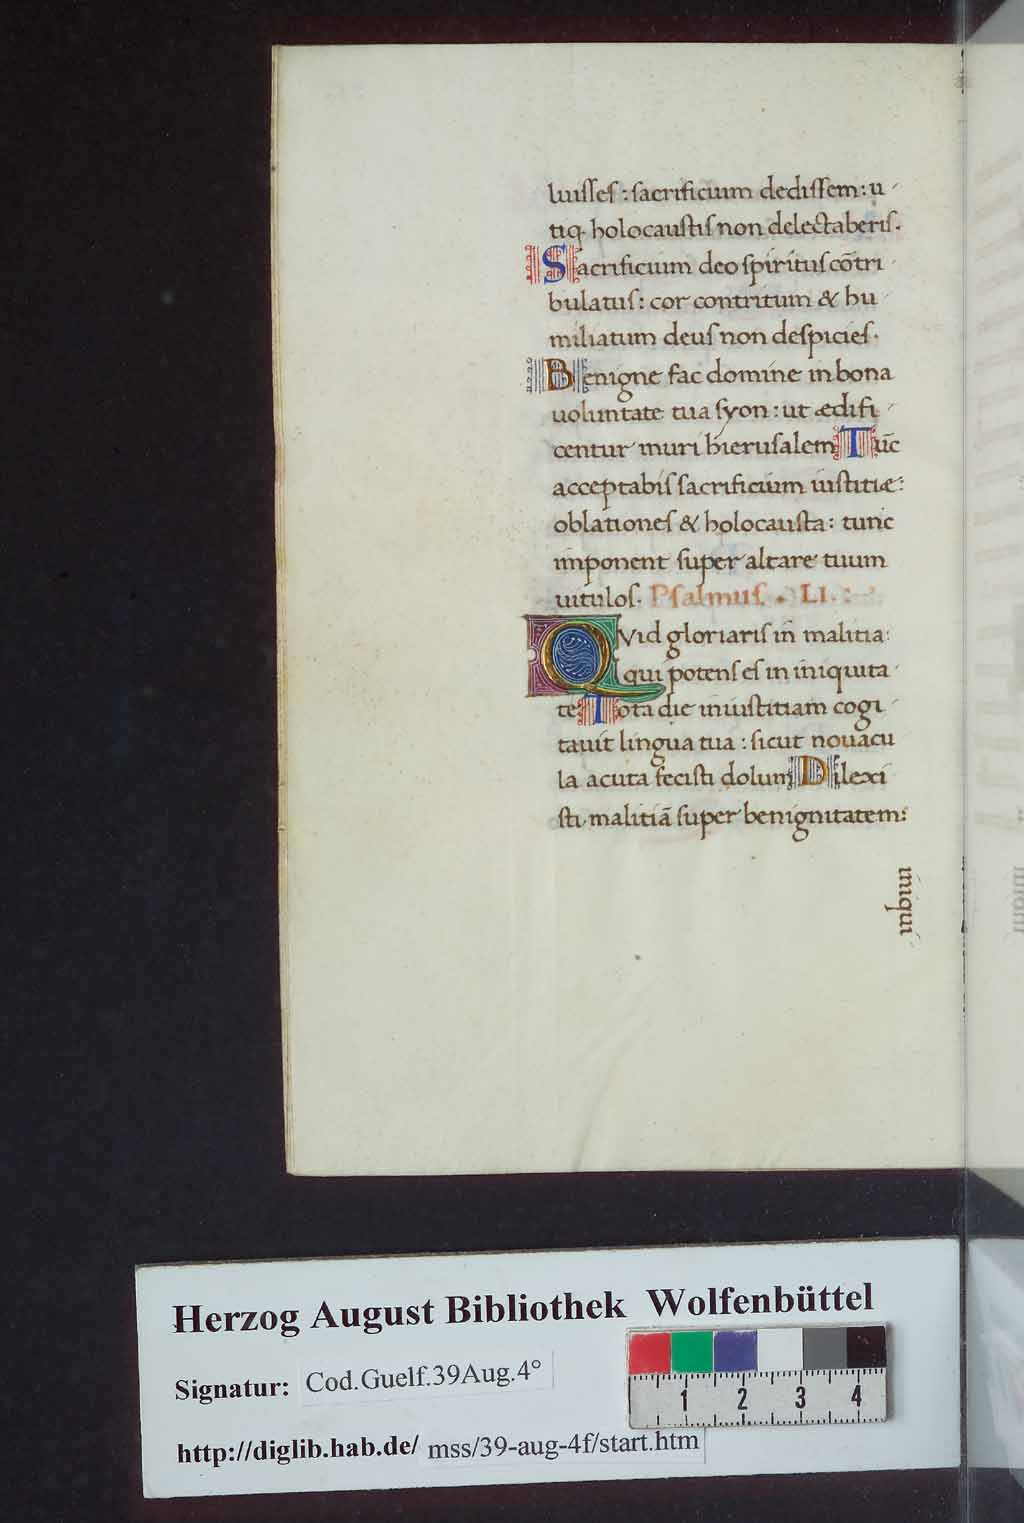 luiſſeſ : ſacrificium dediſſem : u
tiq. holocauſtiſ non delectaberiſ.
Sacrificium deo ſpirituſ cōtri
bulatuſ : cor contritum & hu
miliatum deuſ non deſpicieſ.
Benigne fac domine in bona
uoluntate tua ſyon : ut ædifi
centur muri hieruſalem Tūc
acceptabiſ ſacrificium iuſtitiæ :
oblationeſ & holocauſta : tunc
imponent ſuper altare tuum
uituloſ. Pſalmuſ . LI. :
QVid gloriariſ in malitia :
qui potenſ eſ in iniquita
te Tota die iniuſtitiam cogi
tauit lingua tua : ſicut nouacu
la acuta feciſti dolum Dilexi
ſti malitiā ſuper benignitatem :
iniqui
Herzog August Bibliothek Wolfenbüttel
Signatur: Cod.Guelf.39Aug.4°
1 2 3 4
http://diglib.hab.de/ mss/39-aug-4f/start.htm